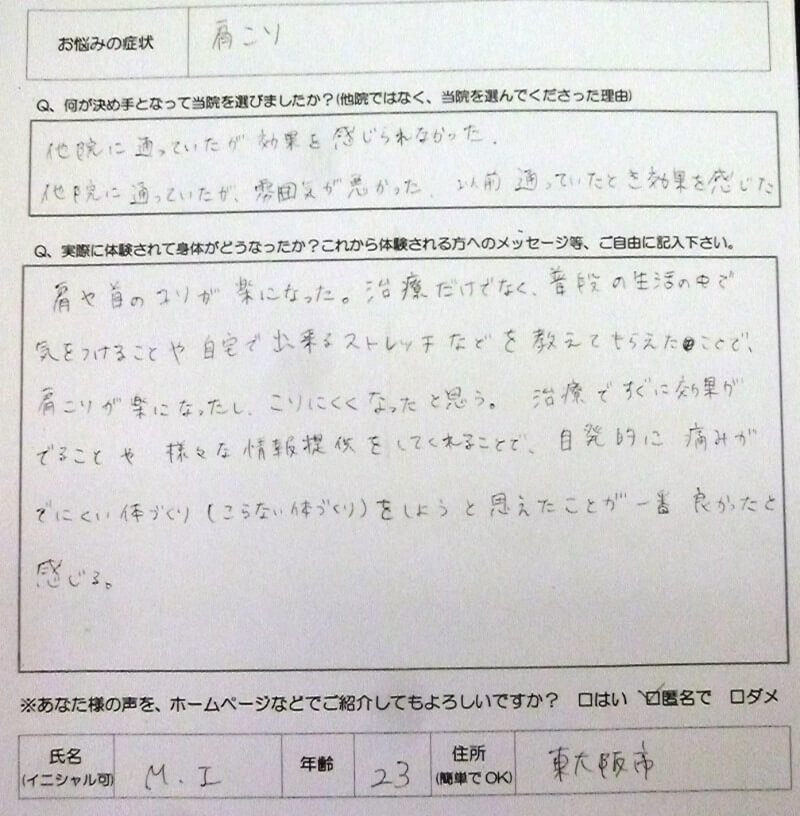 お悩みの症状 肩こり
Q、何が決め手となって当院を選びましたか?(他院ではなく、当院を選んでくださった理由)
他院に通っていたが効果を感じられなかった.
他院に通っていたが、雰囲気が悪かった. 以前通っていたとき効果を感じた
Q、実際に体験されて身体がどうなったか?これから体験される方へのメッセージ等、ご自由に記入下さい。
肩や首のコリが楽になった。治療だけでなく、普段の生活の中で
気をつけることや自宅で出来るストレッチなどを教えてもらえたことで、
肩こりが楽になったし、こりにくくなったと思う。 治療ですぐに効果が
でることや 様々な情報提供をしてくれることで、自発的に痛みが
でにくい体づくり(こらない体づくり)をしようと思えたことが一番良かったと
感じる。
※あなた様の声を、ホームページなどでご紹介してもよろしいですか? □はい ☑匿名で □ダメ
氏名 (イニシャル可) M.I 年齢 23 住所 (簡単でOK) 東大阪市